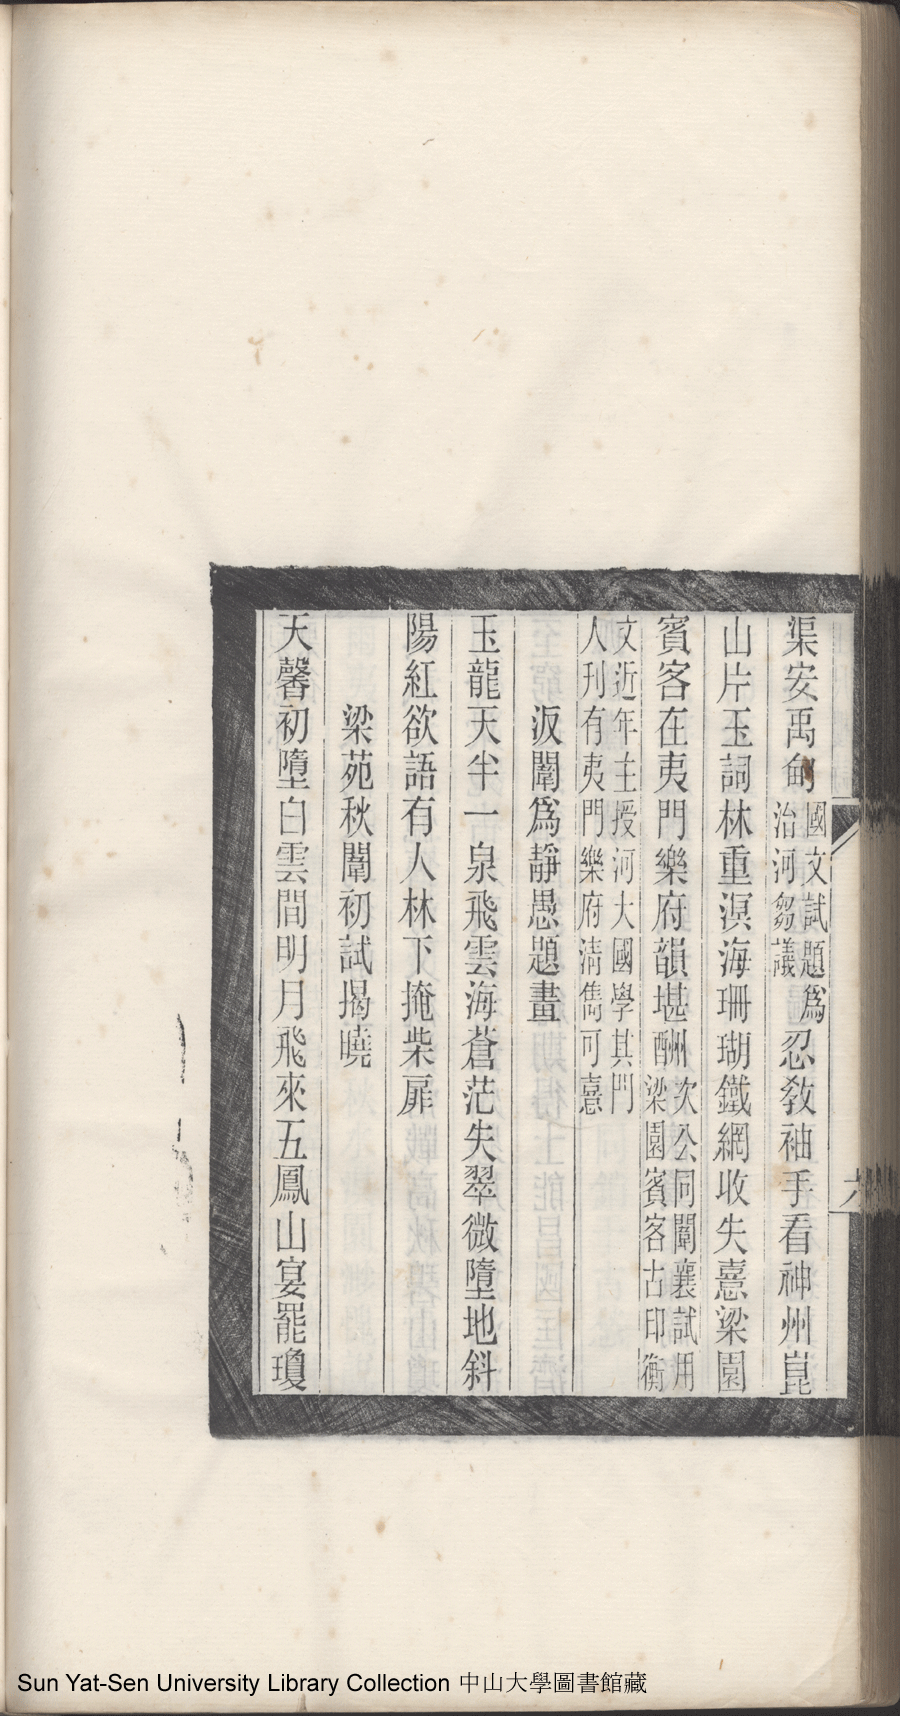 渠安禹甸國文試題爲治河芻議忍敎袖手看神州崑
山片玉詞林重溟海珊瑚鐵網收失憙梁園
賓客在夷門樂府韻堪酬次公同闈襄試用梁園賓客古印衡
文近年主授河大國學其門人刋有夷門樂府淸雋可憙
汳闈爲靜愚題畫
玉龍天半一泉飛雲海蒼茫失翠微墮地斜
陽紅欲語有人林下掩柴扉
梁苑秋闈初試揭曉
天馨初墮白雲間明月飛來五鳳山宴罷瓊
六
Sun Yat-Sen University Library Collection 中山大學圖書館藏